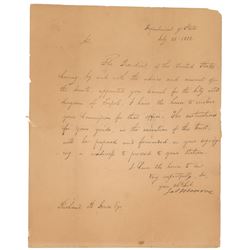 Department of State
July 28 1812.
Sir
The President of the United States
having, by and with the advice and consent of
the Senate, appointed you Consul for the City and
of Tripoli, I have the honor to enclose
your Commission for that office. The instructions
for your guide, in the execution of the trust,
will be prepared and forwarded on your signify
ing a to proceed to your station.
I have the honor to be
very respectfully Sir,
your obt Svt
Jas Monroe
Richard B. Jones Esqr